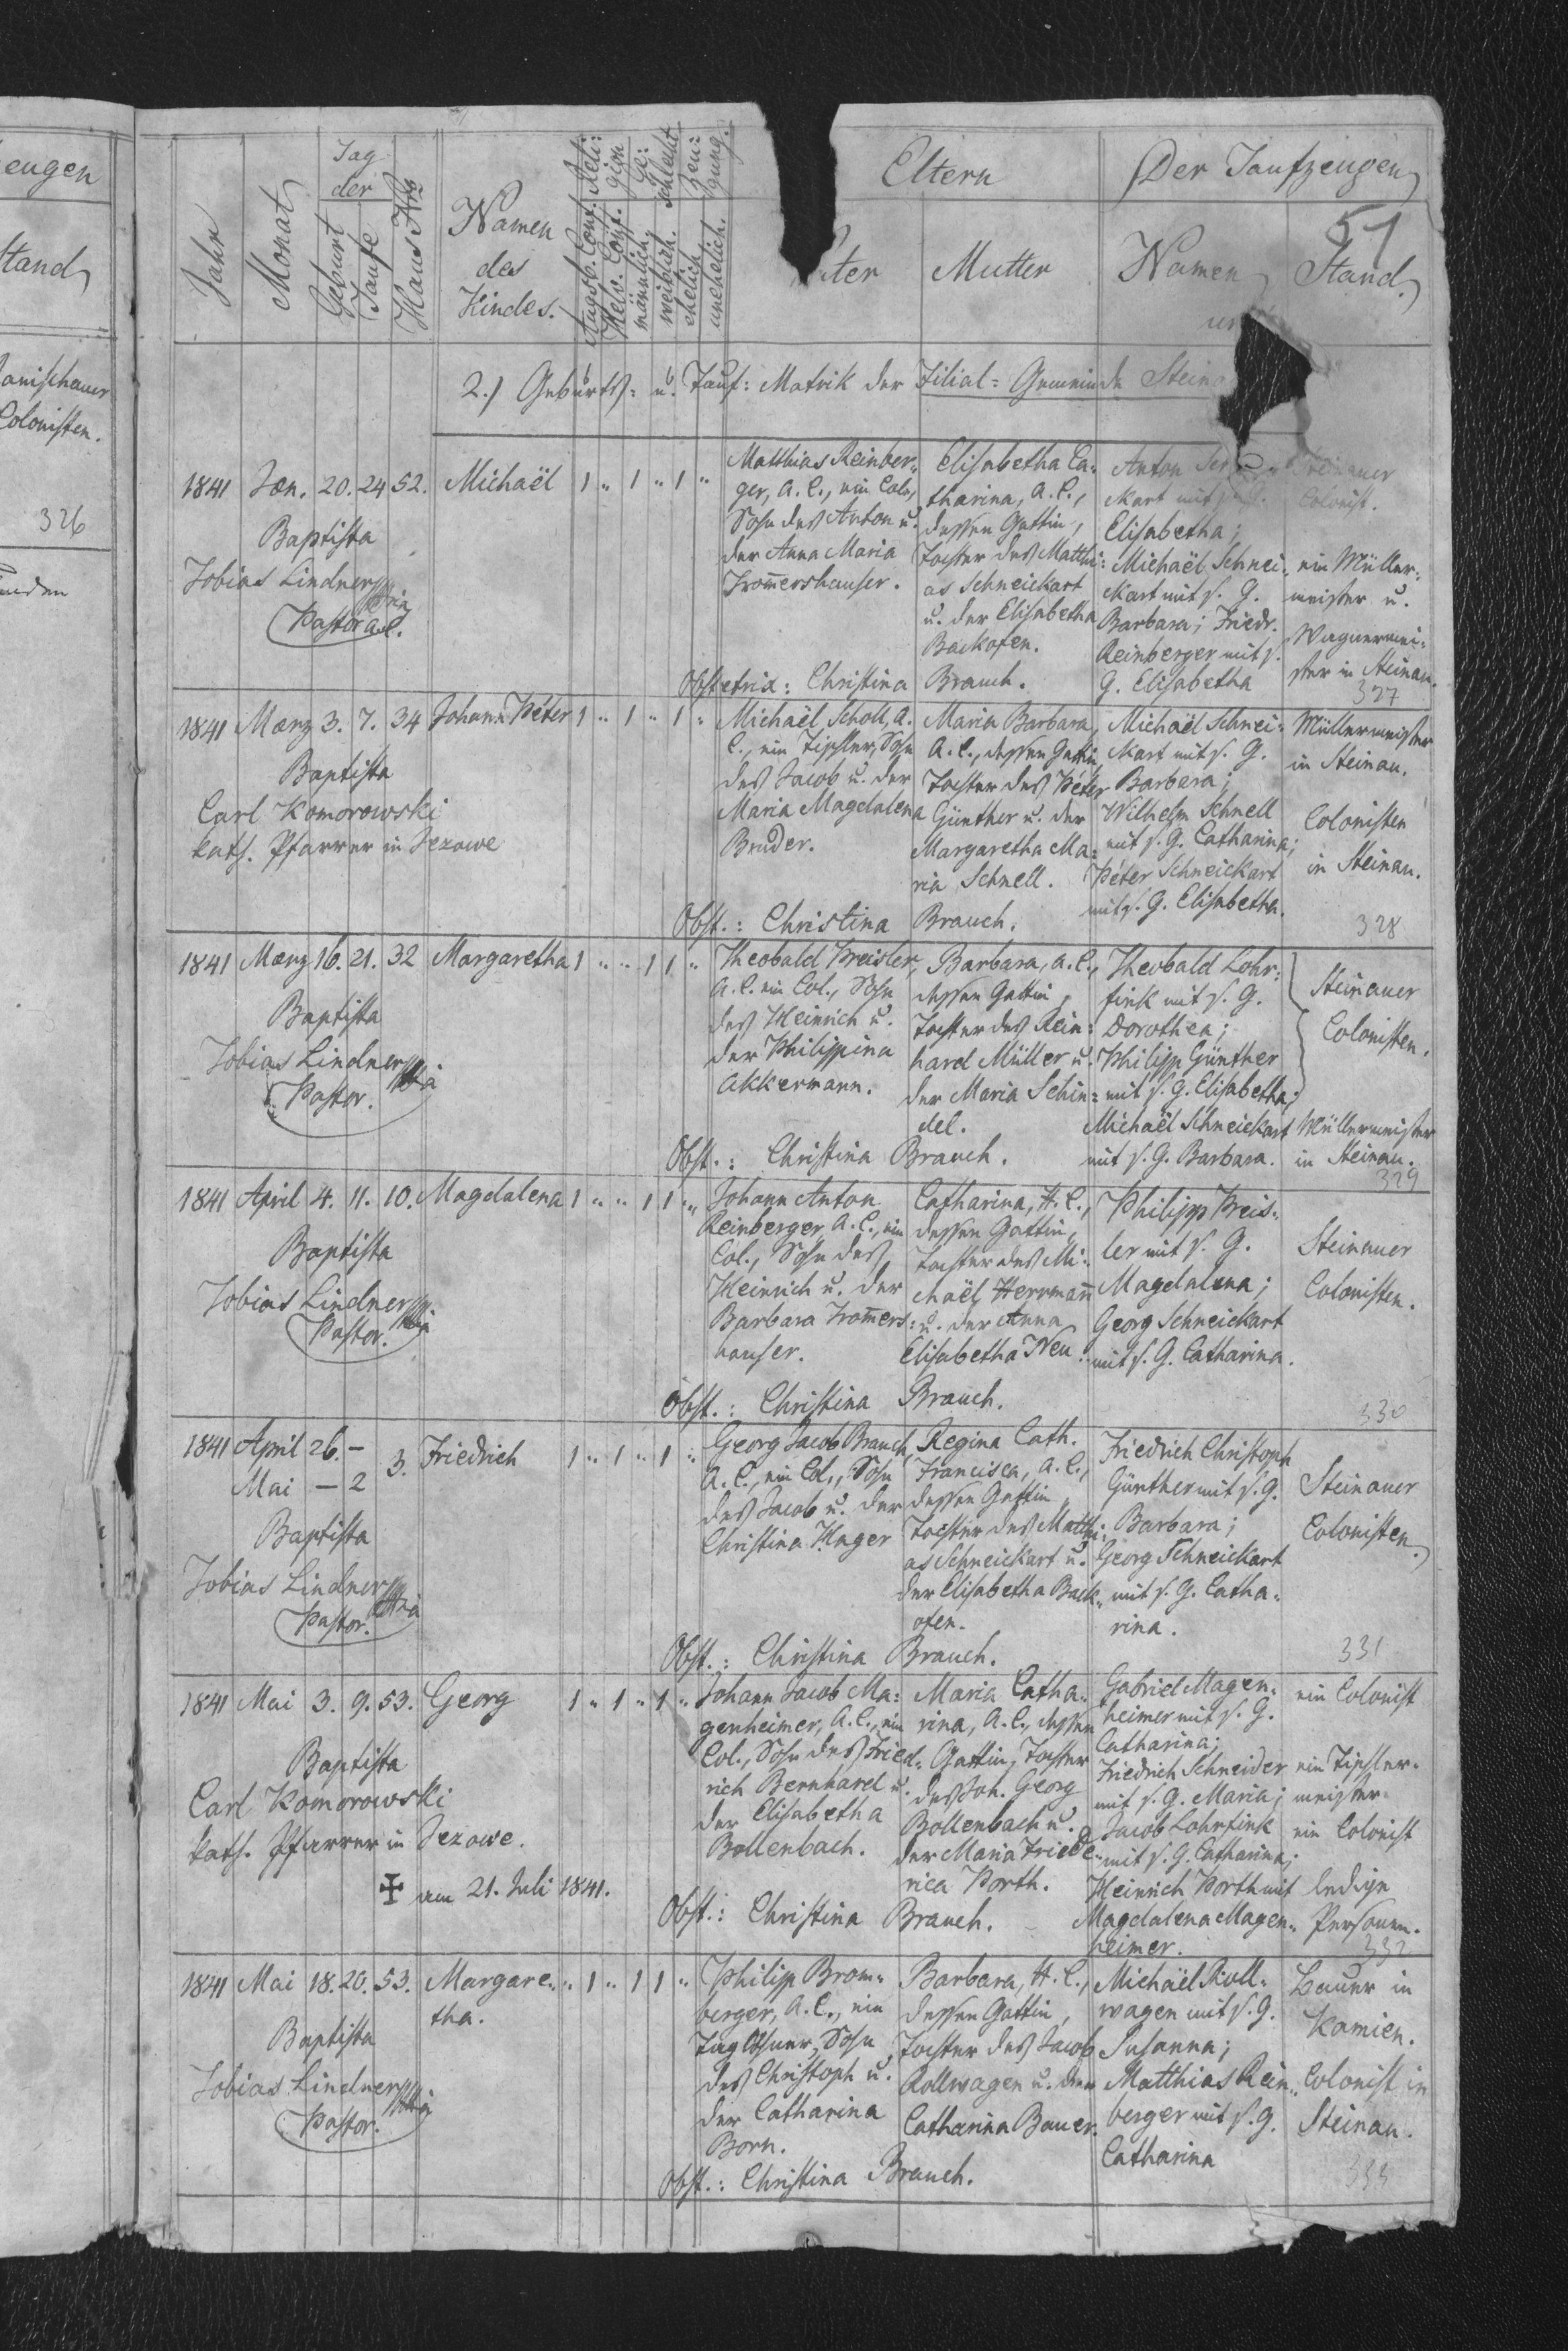 eugen
Stand
Colonisten.
326
Jahr
Monat
Tag
der
Geburt
Taufe
Haus Nro
Namen
des
Kindes.
Reli:
gion
Augsb. Conf.
Helv. Conf.
Ge:
schlecht
männlich
weiblich.
Zeu:
gung.
ehelich
unehelich.
Eltern
Mutter
Der Taufzeugen
Namen
51
Stand.
2.) Geburts= u. Tauf: Matrik der Filial=Gemeinde Steina
1841 Jæn. 20. 24 52. Michaël 1 " 1 " 1 "
Baptista
Tobias Lindner
Pastor
Matthias Reinber„
ger, A. C., ein Col.,
Sohn des Anton u.
der Anna Maria
Trom̄ershauser.
Elisabetha Ca:
tharina, A. C.,
dessen Gattin,
Tochter des Matthi:
as Schneickart
u. der Elisabetha
Backofen.
Anton
ckart mit s. G.
Elisabetha;
Michaël Schnei„
ckart mit s. G.
Barbara; Friedr.
Reinberger mit s.
G. Elisabetha
Steinauer
Colonist.
ein Müller„
meister u.
Wagnermei:
ster in Steinau.
Obstetrix: Christina Brauch.
327
1841 Mærz 3. 7. 34 Johann Péter 1 " 1 " 1 "
Baptista
Carl Komorowski
kath. Pfarrer in Jezowe
Michaël Scholl, A.
C., ein Tischler, Sohn
des Jacob u. der
Maria Magdalena
Bruder.
Maria Barbara,
A. C., dessen Gattin,
Tochter des Péter
Günther u. der
Margaretha Ma:
ria Schnell.
Michaël Schnei:
ckart mit s. G.
Barbara;
Wilhelm Schnell
mit s. G. Catharina;
Péter Schneickart
mit s. G. Elisabetha.
Müllermeister
in Steinau.
Colonisten
in Steinau.
Obst.: Christina Brauch.
328
1841 Mærz 16. 21. 32 Margaretha 1 " " 1 1 "
Baptista
Tobias Lindner
Pastor.
Theobald Kreisler,
A. C. ein Col., Sohn
des Heinrich u.
der Philippina
Akkermann.
Barbara, A. C.,
dessen Gattin,
Tochter des Rein:
hard Müller u.
der Maria Schin:
del.
Theobald Lohr:
fink mit s. G.
Dorothea;
Philipp Günther
mit s. G. Elisabetha;
Michaël Schneickart
mit s. G. Barbara.
Steinauer
Colonisten.
Müllermeister
in Steinau.
Obst.: Christina Brauch.
329
1841 April 4. 11. 10. Magdalena 1 " " 1 1 "
Baptista
Tobias Lindner
Pastor.
Johann Anton
Reinberger, A. C., ein
Col., Sohn des
Heinrich u. der
Barbara Trom̄ers:
hauser.
Catharina, H. C.,
dessen Gattin,
Tochter des Mi:
chaël Herrman̄
u. der Anna
Elisabetha Neu.
Philipp Kreis„
ler mit s. G.
Magdalena;
Georg Schneickart
mit s. G. Catharina.
Steinauer
Colonisten.
Obst.: Christina Brauch.
330
1841 April 26. –
Mai – 2 3. Friedrich 1 " 1 " 1 "
Baptista
Tobias Lindner
Pastor.
Georg Jacob Brauch,
A. C., ein Col., Sohn
des Jacob u. der
Christina Unger
Regina Cath.
Francisca, A. C.,
dessen Gattin,
Tochter des Matthi:
as Schneickart u.
der Elisabetha Back„
ofen.
Friedrich Christoph
Günther mit s. G.
Barbara;
Georg Schneickart
mit s. G. Catha„
rina.
Steinauer
Colonisten.
Obst.: Christina Brauch.
331
1841 Mai 3. 9. 53. Georg 1 " 1 " 1 "
Baptista
Carl Komorowski
kath. Pfarrer in Jezowe.
✠ am 21. Juli 1841.
Johann Jacob Ma:
genheimer, A. C., ein
Col., Sohn des Fried„
rich Bernhard u.
der Elisabetha
Bollenbach.
Maria Catha„
rina, A. C., dessen
Gattin, Tochter
des Joh. Georg
Bollenbach u.
der Maria Friede„
rica Porth.
Gabriel Magen„
heimer mit s. G.
Catharina;
Friedrich Schneider
mit s. G. Maria;
Jacob Lohrfink
mit s. G. Catharina;
Heinrich Porth mit
Magdalena Magen„
heimer.
ein Colonist
ein Tischler„
meister.
ein Colonist
ledige
Personen.
Obst.: Christina Brauch.
332
1841 Mai 18. 20. 53. Margare„ " 1 " 1 1 "
tha.
Baptista
Tobias Lindner
Pastor.
Philipp Brom„
berger, A. C., ein
Taglöhner, Sohn
des Christoph u.
der Catharina
Born.
Barbara, H. C.,
dessen Gattin,
Tochter des Jacob
Rollwagen u. der
Catharina Bauer.
Michaël Roll„
wagen mit s. G.
Susanna;
Matthias Rein„
berger mit s. G.
Catharina
Bauer in
Kamien.
Colonist in
Steinau.
Obst.: Christina Brauch.
333